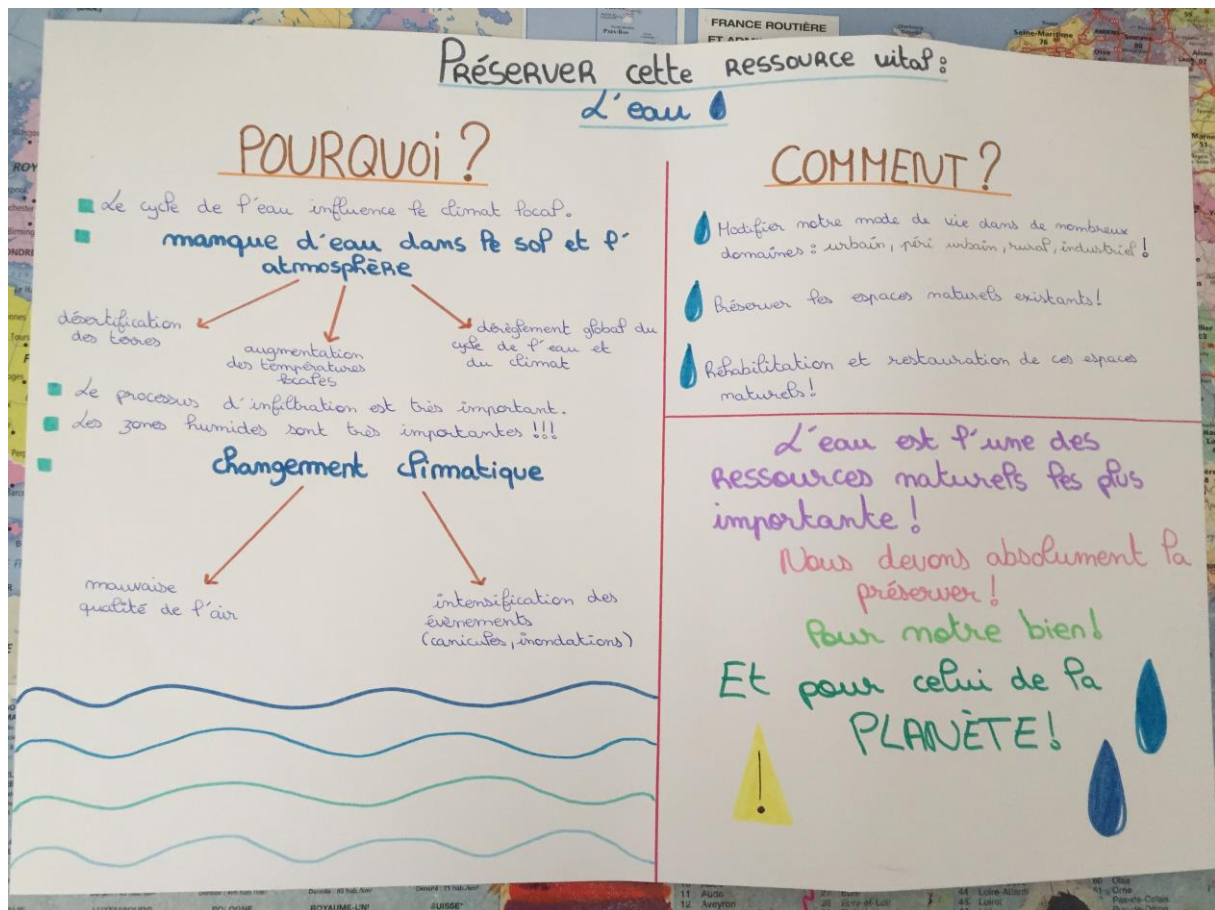 FRANCE ROUTIÈRE
Seine-Maritime
76
PRÉSERVER cette RESSOURCE vital :
L'eau
POURQUOi ?
Le cycle de l'eau influence le climat local.
manque d'eau dans le sol et l'
atmosphère
désertification
des terres
augmentation
des températures
locales
dérèglement global du
cycle de l'eau et
du climat
Le processus d'infiltration est très important.
Les zones humides sont très importantes !!!
changement climatique
mauvaise
qualité de l'air
intensification des
évènements
(canicules, inondations)
COMMENT ?
Modifier notre mode de vie dans de nombreux
domaines : urbain, péri urbain, rural, industriel !
Préserver les espaces naturels existants !
Réhabilitation et restauration de ces espaces
naturels !
L'eau est l'une des
Ressources naturels les plus
importante !
Nous devons absolument la
préserver !
Pour notre bien !
Et pour celui de la
PLANÈTE !
!
11 Aude
12 Aveyron
28 Eure-et-Loir
44 Loire-Atlanti
45 Loiret
60 Oise
61 Orne
Pas-de-Calais
LUXEMBOURG
POLOGNE
ROYAUME-UNI
SUISSE